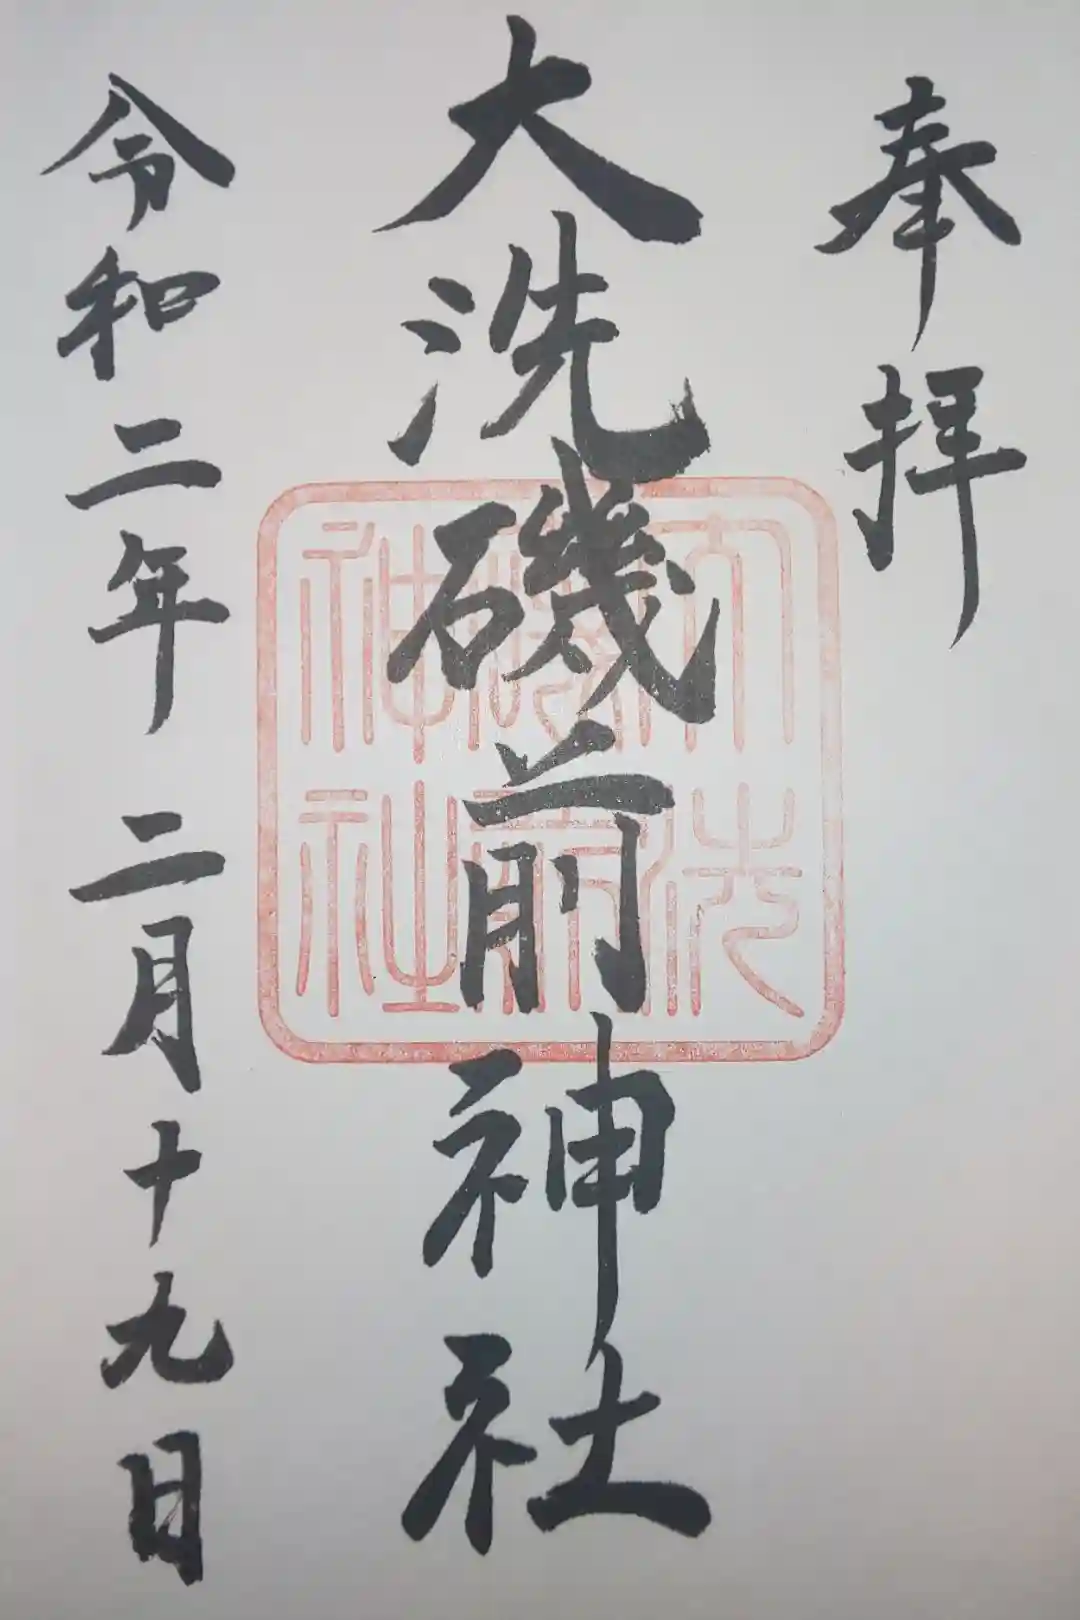 奉拝
大洗磯前神社
大洗
磯前
神社
令和二年 二月十九日